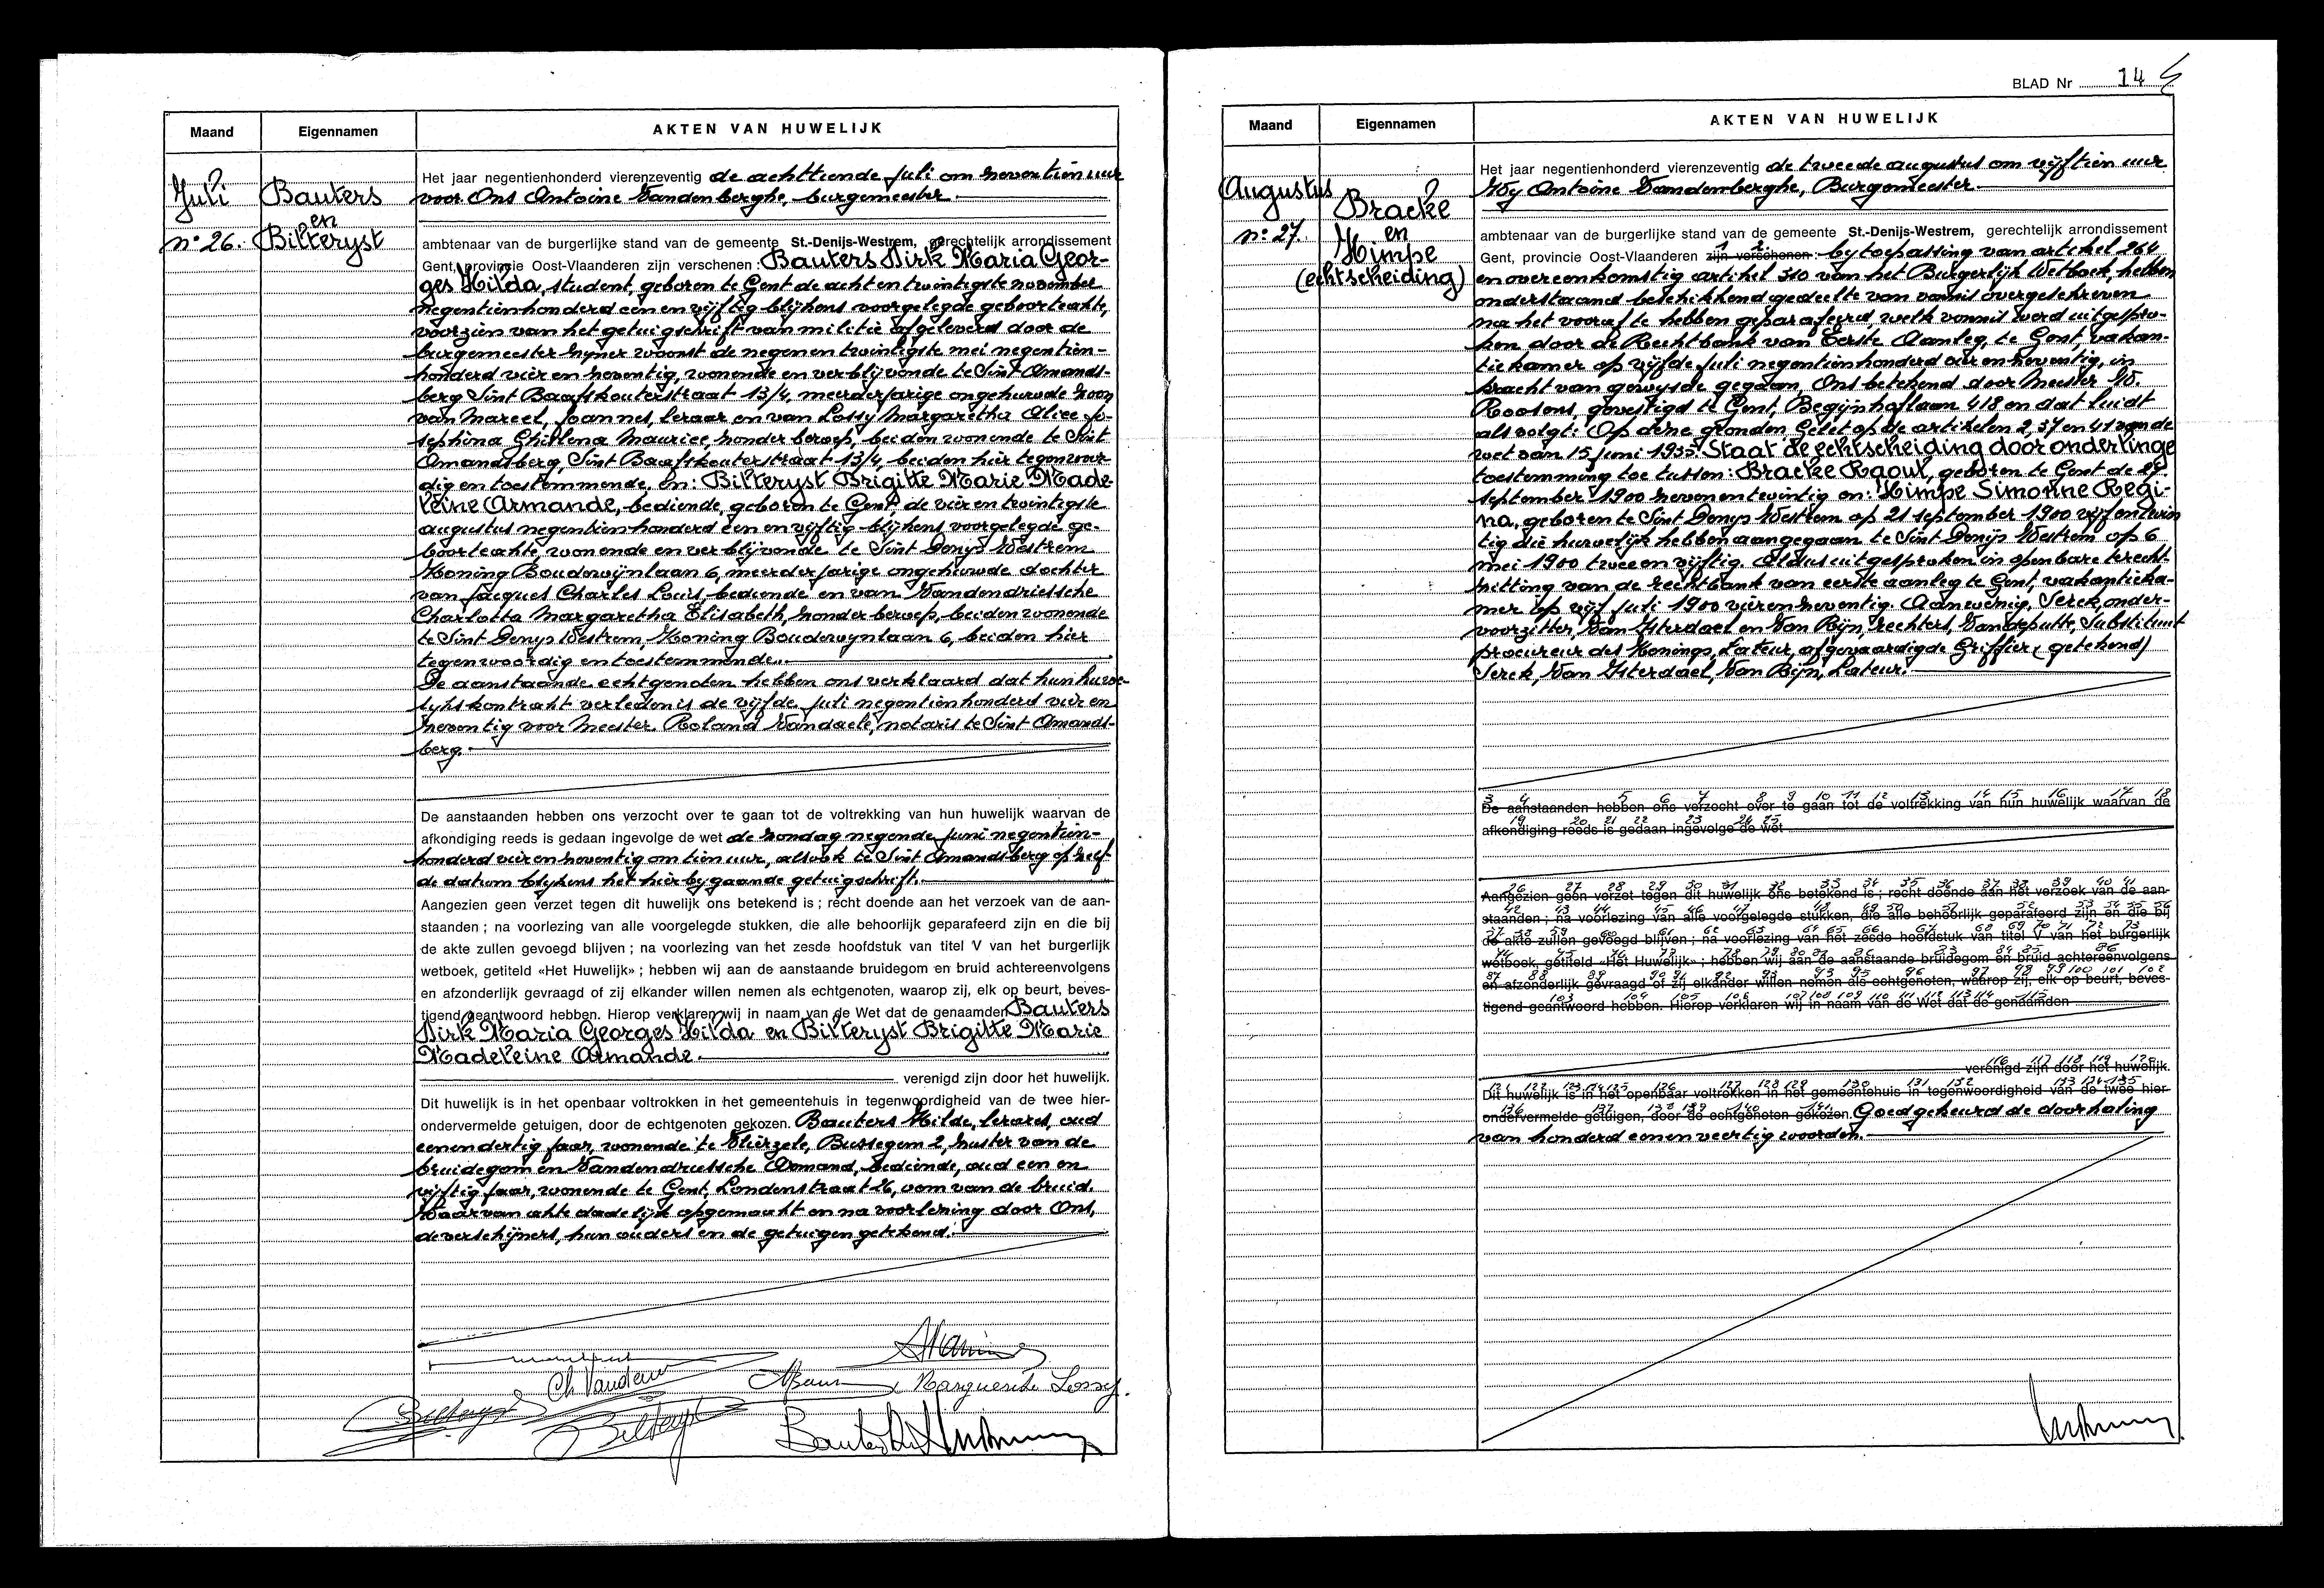 Maand
Eigennamen
AKTEN VAN HUWELIJK
Juli
n° 26.
Bauters
en
Bilteryst
Het jaar negentienhonderd vierenzeventig de achttiende Juli om zeventien uur
voor Ons Antoine Vandenberghe, burgemeester
ambtenaar van de burgerlijke stand van de gemeente St.-Denijs-Westrem, gerechtelijk arrondissement
Gent, provincie Oost-Vlaanderen zijn verschenen : Bauters Dirk Maria Geor-
ges Hilda, student, geboren te Gent de acht en twintigste november
negentienhonderd een en vijftig blijkens voorgelegde geboorteakte,
voorzien van het getuigschrift van militie afgeleverd door de
burgemeester zijner woonst de negenentwintigste mei negentien-
honderd vier en zeventig, wonende en verblijvende te Sint Amands-
berg Sint Baafskouterstraat 13/4, meerderjarige ongehuwde zoon
van Marcel, Joannes, leraar en van Lossy Margaretha Alice Jo-
sephina Ghislena Maurice, zonder beroep, beiden wonende te Sint
Amandsberg, Sint Baafskouterstraat 13/4, beiden hier tegenwoor-
dig en toestemmende, en: Bilteryst Brigitte Marie Made-
leine Armande, bediende, geboren te Gent, de vier en twintigste
augustus negentienhonderd een en vijftig blijkens voorgelegde ge-
boorteakte, wonende en verblijvende te Sint Denys Westrem
Koning Boudewijnlaan 6, meerderjarige ongehuwde dochter
van Jacques Charles Louis, bediende en van Vandendriessche
Charlotta Margaretha Elisabeth, zonder beroep, beiden wonende
te Sint Denys Westrem, Koning Boudewynlaan 6, beiden hier
tegenwoordig en toestemmende.
De aanstaande echtgenoten hebben ons verklaard dat hun huwe-
lijkskontrakt verleden is de vijfde Juli negentienhonderd vier en
zeventig voor Meester Roland Vandaele, notaris te Sint Amands-
berg.
De aanstaanden hebben ons verzocht over te gaan tot de voltrekking van hun huwelijk waarvan de
afkondiging reeds is gedaan ingevolge de wet de zondag negende juni negentien-
honderd vier en zeventig om tien uur, alsook te Sint Amandsberg op zelf-
de datum blijkens het hierbijgaande getuigschrift.
Aangezien geen verzet tegen dit huwelijk ons betekend is ; recht doende aan het verzoek van de aan-
staanden ; na voorlezing van alle voorgelegde stukken, die alle behoorlijk geparafeerd zijn en die bij
de akte zullen gevoegd blijven ; na voorlezing van het zesde hoofdstuk van titel V van het burgerlijk
wetboek, getiteld «Het Huwelijk» ; hebben wij aan de aanstaande bruidegom en bruid achtereenvolgens
en afzonderlijk gevraagd of zij elkander willen nemen als echtgenoten, waarop zij, elk op beurt, beves-
tigend geantwoord hebben. Hierop verklaren wij in naam van de Wet dat de genaamden Bauters
Dirk Maria Georges Hilda en Bilteryst Brigitte Marie
Madeleine Armande.
verenigd zijn door het huwelijk.
Dit huwelijk is in het openbaar voltrokken in het gemeentehuis in tegenwoordigheid van de twee hier-
ondervermelde getuigen, door de echtgenoten gekozen. Bauters Hilde, lerares, oud
eenendertig jaar, wonende te Vlierzele, Bussegem 2, zuster van de
bruidegom en Vandendriessche Armand, bediende, oud een en
vijftig jaar, wonende te Gent, Londenstraat 26, oom van de bruid.
Waarvan akte dadelijk opgemaakt en na voorlezing door Ons,
de verschijners, hun ouders en de getuigen getekend.
Marguerite Lossy.
Bilteryst
Bilteryst
BLAD Nr 14
Maand
Eigennamen
AKTEN VAN HUWELIJK
Augustus
n° 27.
Bracke
en
Himpe
(echtscheiding)
Het jaar negentienhonderd vierenzeventig de tweede augustus om vijftien uur
Wij Antoine Vandenberghe, Burgemeester
ambtenaar van de burgerlijke stand van de gemeente St.-Denijs-Westrem, gerechtelijk arrondissement
1 2
Gent, provincie Oost-Vlaanderen zijn verschenen : bij toepassing van artikel 264
en overeenkomstig artikel 310 van het Burgerlijk Wetboek, hebben
onderstaand beschikkend gedeelte van vonnis overgeschreven
na het vooraf te hebben geparafeerd welk vonnis werd uitgespro-
ken door de Rechtbank van Eerste Aanleg, te Gent, vakan-
tiekamer op vijfde Juli negentienhonderd vier en zeventig, in
kracht van gewijsde gegaan, Ons betekend door Meester W.
Roosens, gevestigd te Gent, Begijnhoflaan 418 en dat luidt
als volgt: Op deze gronden, Gelet op de artikelen 2, 37 en 41 van de
wet van 15 Juni 1935. Staat de echtscheiding door onderlinge
toestemming toe tussen: Bracke Raoul, geboren te Gent de 29
september 1900 zevenentwintig en: Himpe Simonne Regi-
na, geboren te Sint Denys Westrem op 21 september 1900 vijfentwin
tig die huwelijk hebben aangegaan te Sint Denijs Westrem op 6
mei 1900 tweeenvijftig. Aldus uitgesproken in openbare terecht-
zitting van de rechtbank van eerste aanleg te Gent, vakantieka-
mer op vijf Juli 1900 vierenzeventig. Aanwezig, Serck, onder-
voorzitter, Van Isterdael en Van Rijn, rechters, Vandeputte, Substituut
procureur des Konings, Lateur, afgevaardigde Griffier (getekend)
Serck, Van Isterdael, Van Rijn, Lateur.
De aanstaanden hebben ons verzocht over te gaan tot de voltrekking van hun huwelijk waarvan de
afkondiging reeds is gedaan ingevolge de wet
Aangezien geen verzet tegen dit huwelijk ons betekend is ; recht doende aan het verzoek van de aan-
staanden ; na voorlezing van alle voorgelegde stukken, die alle behoorlijk geparafeerd zijn en die bij
de akte zullen gevoegd blijven ; na voorlezing van het zesde hoofdstuk van titel V van het burgerlijk
wetboek, getiteld «Het Huwelijk» ; hebben wij aan de aanstaande bruidegom en bruid achtereenvolgens
en afzonderlijk gevraagd of zij elkander willen nemen als echtgenoten, waarop zij, elk op beurt, beves-
tigend geantwoord hebben. Hierop verklaren wij in naam van de Wet dat de genaamden
verenigd zijn door het huwelijk.
Dit huwelijk is in het openbaar voltrokken in het gemeentehuis in tegenwoordigheid van de twee hier-
ondervermelde getuigen, door de echtgenoten gekozen. Goedgekeurd de doorhaling
van honderd eenenveertig woorden.